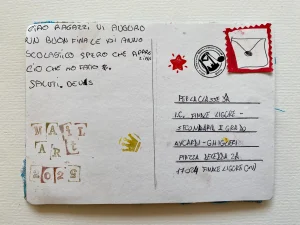 CIAO RAGAZZI VI AUGURO
UN BUON FINALE DI ANNO
SCOLASTICO SPERO CHE
CIÒ CHE HO FATTO
SALUTI. DENIS
MAIL
ART
2025
PER LA CLASSE
I.C. FINALE LIGURE -
SECONDARIA I GRADO
AYCARDI - GHIGLIERI
PIAZZA 2A
17024 FINALE LIGURE (SV)